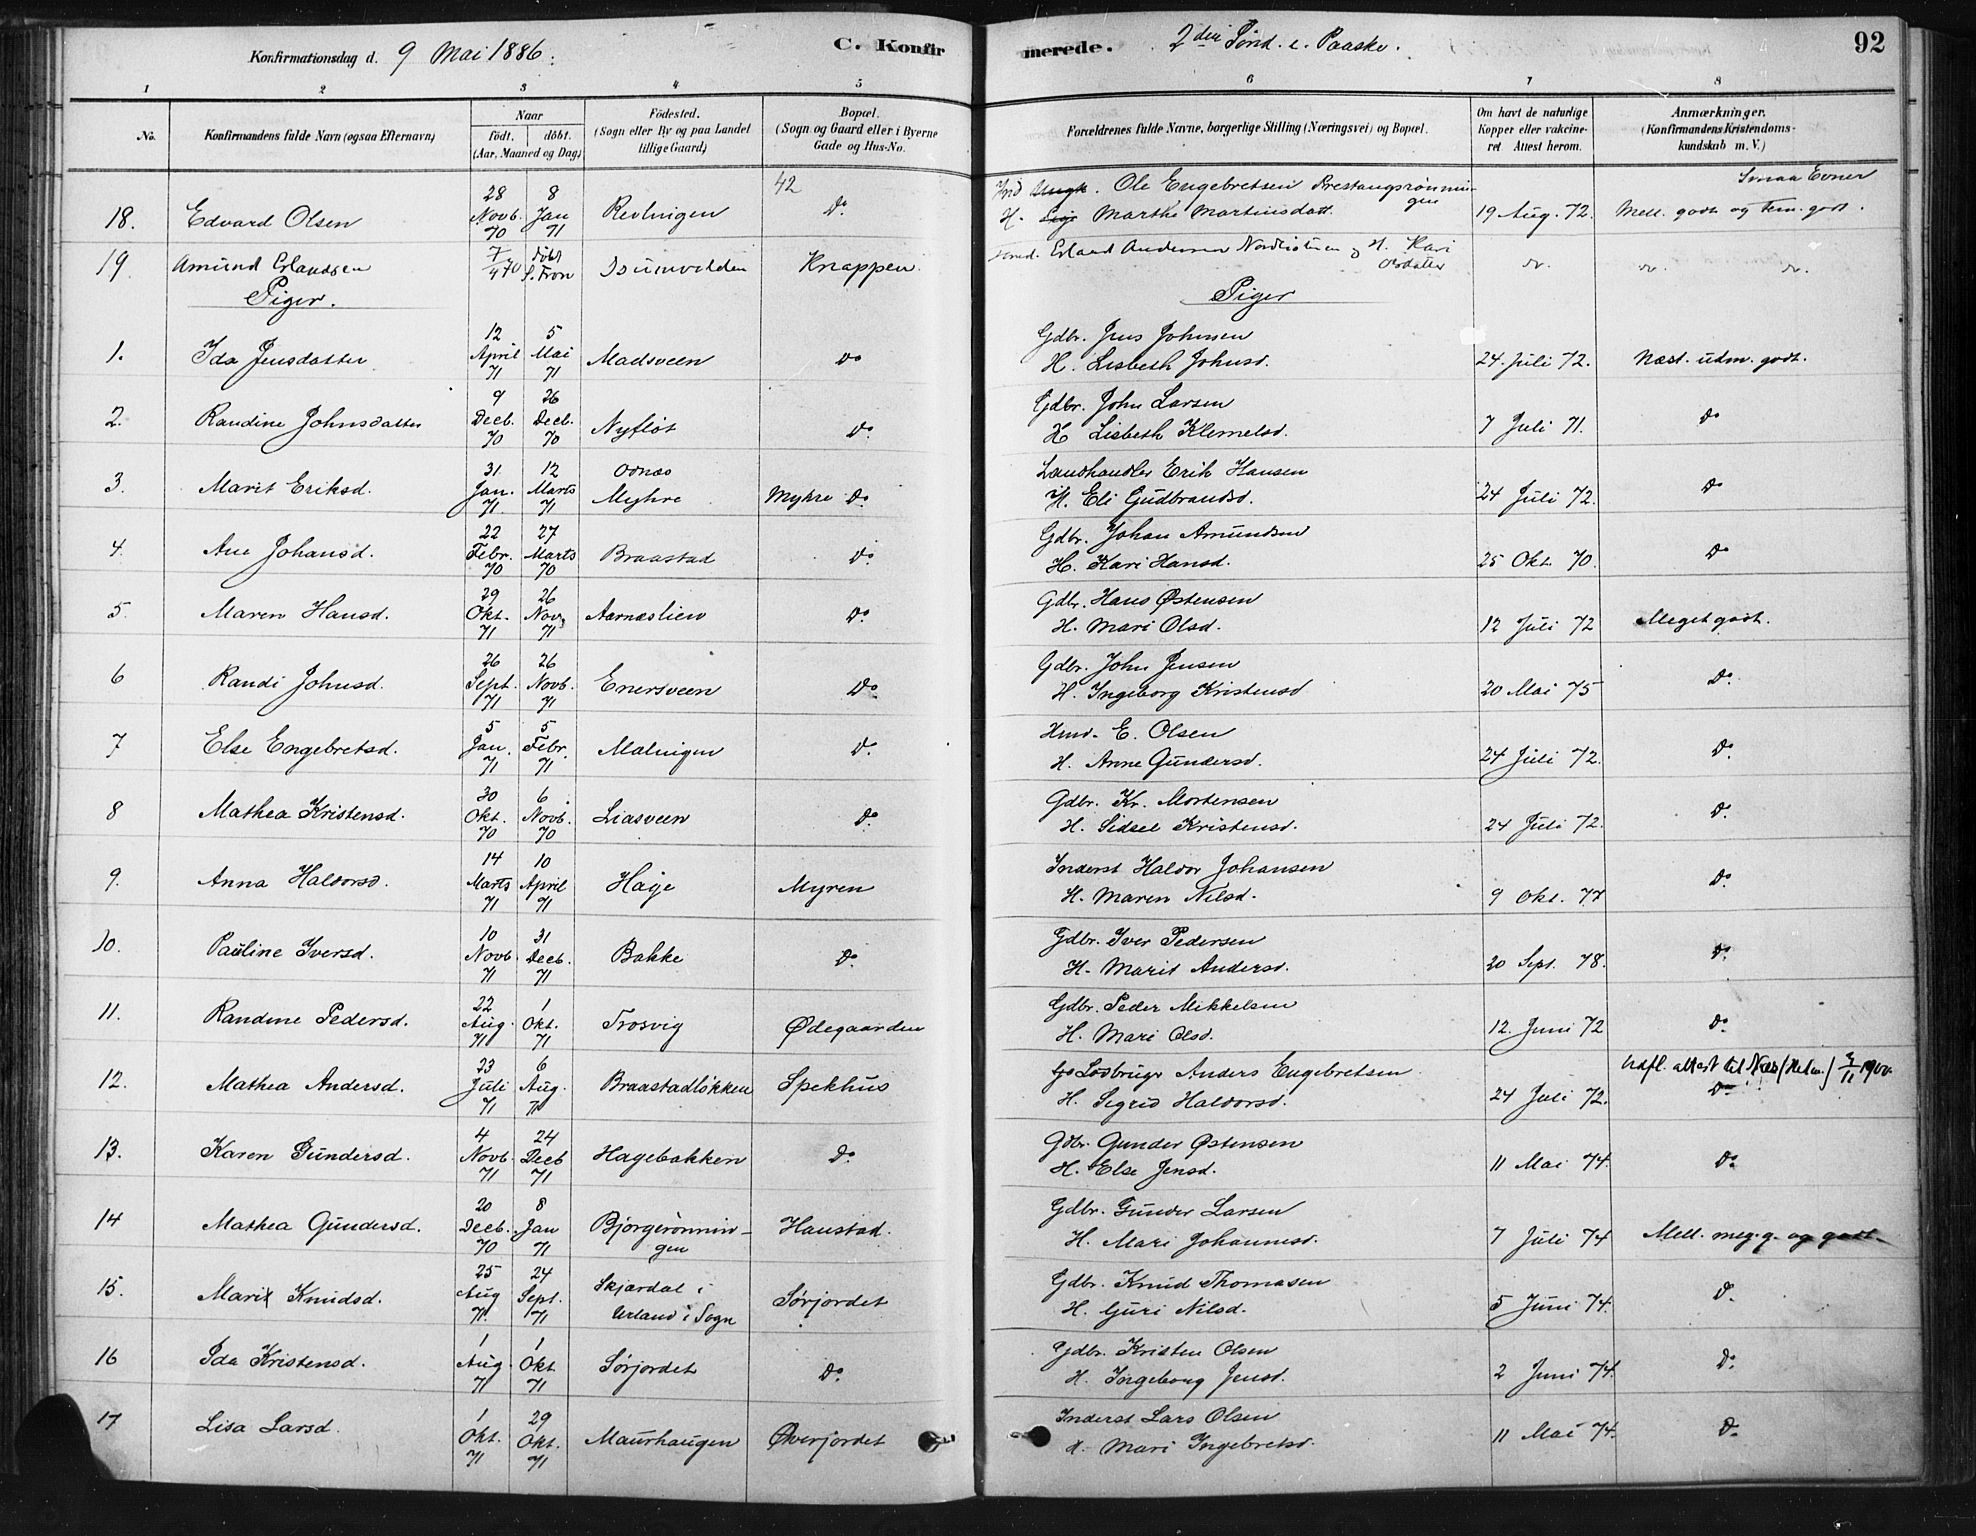 Konfirmationsdag d. 9 Mai 1886. C. Konfirmerede. 2den Sønd. e. Paaske. 92
1 2 3 4 5 6 7 8
No. Konfirmandens fulde Navn (ogsaa Efternavn) Naar født. døbt. (Aar, Maaned og Dag) Fødested. (Sogn eller By og paa Landet tillige Gaard) Bopæl. (Sogn og Gaard eller i Byerne Gade og Hus-No. Forældrenes fulde Navne, borgerlige Stilling (Næringsvei) og Bopæl. Om havt de naturlige Kopper eller vakcineret Attest herom. Anmærkninger. (Konfirmandens Kristendomskundskab m. V.)
42
18. Edvard Olsen 28 Novb. 70 8 Jan 71 Revlingen Do. Ole Engebretsen Prestangsrønningen H. Marthe Martinsdatt. 19 Aug. 72. Smaa Evner Mell. godt og tem. godt.
19. Amund Erlandsen 7/4 70 døbt S. Fron Isumvolden Knappen Erland Andersen H. Kari Olsdatter do. do. do.
Piger. Piger
1. Ida Jensdatter 12 April 71 5 Mai 71 Madsveen Do Gdbr. Jens Johnsen H. Lisbeth Johnsd. 24 Juli 72. Næst. udm. godt.
2. Randine Johnsdatter 9 Decb. 70 26 Decb. 70 Nyfløt Do. Gdbr. John Larsen H Lisbeth Klemetsd. 7 Juli 71. Do
3. Marit Eriksd. 31 Jan. 71 12 Marts 71 Odnæs Myhre Myhre Do. Landhandler Erik Hansen H. Eli Gudbrandsd. 24 Juli 72. Do
4. Ane Johansd. 22 Febr. 70 27 Marts 70 Braastad Do. Gdbr. Johan Amundsen H. Kari Hansd. 25 Okt. 70. Do
5 Maren Hansd. 29 Okt. 71 26 Nov. 71 Aarnæslien Do. Gdbr. Hans Østensen H. Mari Olsd. 12 Juli 72 Meget godt.
6 Randi Johnsd. 26 Sept. 71 26 Novb. 71 Enersveen Do Gdbr. John Jensen H. Ingeborg Kristensd 20 Mai 75 Do.
7 Else Engebretsd. 5 Jan. 71 5 Febr. 71 Malningen Do. Hmd. E. Olsen H. Anne Gundersd. 24 Juli 72. Do.
8 Mathea Kristensd. 30 Okt. 70 6 Novb. 70 Liasveen Do. Gdbr. Kr. Mortensen H. Sidsel Kristensd. 24 Juli 72. Do.
9. Anna Haldorsd. 14 Marts 71 10 April 71 Hage Myren Inderst Haldor Johansen H. Maren Nilsd. 9 Okt. 77 Do.
10. Pauline Iversd. 10 Novb. 71 31 Decb. 71 Bakke Do. Gdbr. Iver Pedersen H. Marit Andersd. 20 Sept. 78. Do.
11. Randine Pedersd. 22 Aug. 71 1 Okt. 71 Trosvig Ødegaarden Gdbr. Peder Mikkelsen H. Mari Olsd. 12. Juni 72 Do.
12. Mathea Andersd. 23 Juli 71 6 Aug. 71 Braastadløkken Spekhus Lodbruger Anders Engebretsen H. Sigrid Haldorsd. 24 Juli 72. Udfl. attest til Næs (Hedm.) 3/11 1900 Do
13. Karen Gundersd. 4 Novb. 71 24 Decb 71 Hagebakken Do. Gdbr. Gunder Østensen H. Else Jensd. 11 Mai 74. Do.
14 Mathea Gundersd. 20 Decb. 70 8 Jan 71 Bjørgerønningen Haustad. Gdbr. Gunder Larsen H. Mari Johannesd. 7 Juli 74 Mell. meg. g. og godt.
15. Marit Knudsd. 25 Aug 71. 24 Sept. 71 Skjærdal i Urland i Sogn Sørjordet Gdbr. Knud Thomasen H. Guri Nilsd. 5 Juni 74. D.
16 Ida Kristensd. 1 Aug. 71 1 Okt 71 Sørjordet Do. Gdbr. Kristen Olsen H. Ingeborg Jensd. 2 Juni 74. Do.
17 Lisa Larsd. 1 Okt. 71 29 Okt. 71 Maurhaugen Øverjordet Inderst Lars Olsen H. Mari Ingebretsd. 11 Mai 74. D.